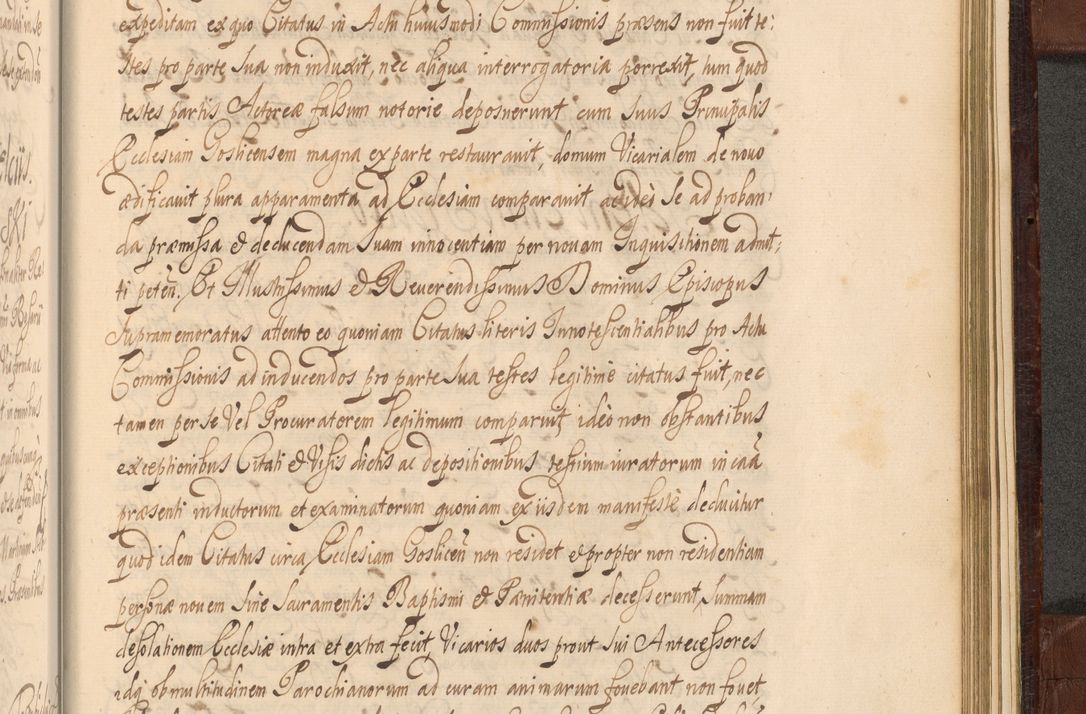 expeditam ex quo Citatus in Actu huiusmodi Commissionis præsens non fuit te:
stes pro parte sua non induxit, nec aliqua interrogatoria porrexit, tum quod
testes partis Actoreæ falsum notorie deposuerunt cum suus Principalis
Ecclesiam Goslicensem magna ex parte restauravit, domum Vicarialem de novo
ædificavit plura apparamenta ad Ecclesiam comparavit ac ideò se ad proban:
da præmissa & deducendam suam innocentiam per novam Inquisitionem admit:
ti peteñ. Et Illustrissimus & Reverendissimus D Dominus Episcopus
supramemoratus attento eo quoniam Citatus literis Innotescentialibus pro Actu
Commissionis ad inducendos pro parte sua testes legitimè citatus fuit, nec
tamen per se Vel Procuratorem legitimum comparuit, ideò non obstantibus
exceptionibus Citati & Visis dictis ac depositionibus testium iuratorum in caã
præsenti inductorum et examinatorum quoniam ex iisdem manifestè deducitur
quod idem Citatus circa Ecclesiam Goslicen̄ non residet & propter non residentiam
personæ novem sine Sacramentis Baptismi & Pænitentiæ decesserunt, summam
desolationem Ecclesiæ intra et extra fecit, Vicarios duos prout sui Antecessores
idq ob multitudinem Parochianorum ad curam animarum fovebant non fovet,